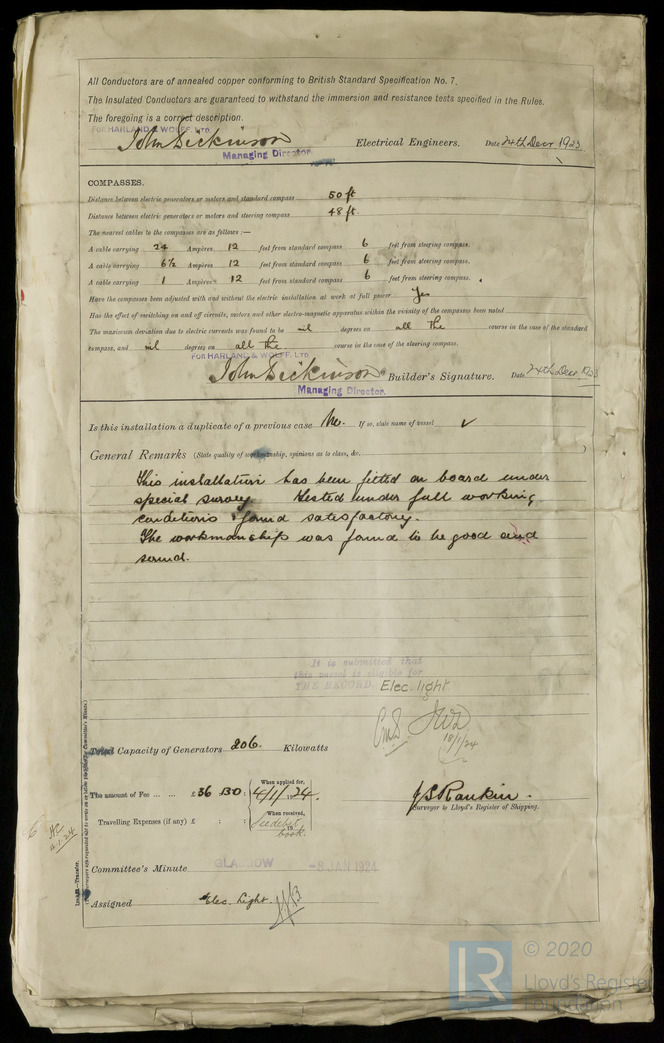 All Conductors are of annealed copper conforming to British Standard Specification No. 7.
The Insulated Conductors are guaranteed to withstand the immersion and resistance tests specified in the Rules.
The foregoing is a correct description.
FOR HARLAND & WOLFF, LTD.
John Dickinson Electrical Engineers. Date 24th Decr 1923
Managing Director.
COMPASSES.
Distance between electric generators or motors and standard compass 50 ft
Distance between electric generators or motors and steering compass 48 ft.
The nearest cables to the compasses are as follows :—
A cable carrying 24 Ampères 12 feet from standard compass 6 feet from steering compass.
A cable carrying 6½ Ampères 12 feet from standard compass 6 feet from steering compass.
A cable carrying 1 Ampères 12 feet from standard compass 6 feet from steering compass.
Have the compasses been adjusted with and without the electric installation at work at full power Yes
Has the effect of switching on and off circuits, motors and other electro-magnetic apparatus within the vicinity of the compasses been noted
The maximum deviation due to electric currents was found to be nil degrees on all the course in the case of the standard
compass, and nil degrees on all the course in the case of the steering compass.
FOR HARLAND & WOLFF, LTD
John Dickinson Builder's Signature. Date 24th Decr 1923
Managing Director.
Is this installation a duplicate of a previous case No. If so, state name of vessel
General Remarks (State quality of workmanship, opinions as to class, &c.
This installation has been fitted on board under
special survey. Tested under full working
conditions & found satisfactory.
The workmanship was found to be good and
sound.
It is submitted that
this vessel is eligible for
THE RECORD. Elec. light
18/1/24
Total Capacity of Generators 206. Kilowatts
The amount of Fee ... ... £ 36 : 30 : When applied for, 4/1/1924.
J S Rankin.
Surveyor to Lloyd's Register of Shipping.
Travelling Expenses (if any) £ : : When received, See debit book. 19
Committee's Minute GLASGOW -8 JAN 1924
Assigned Elec. Light
LR
© 2020
Lloyd's Register
Foundation